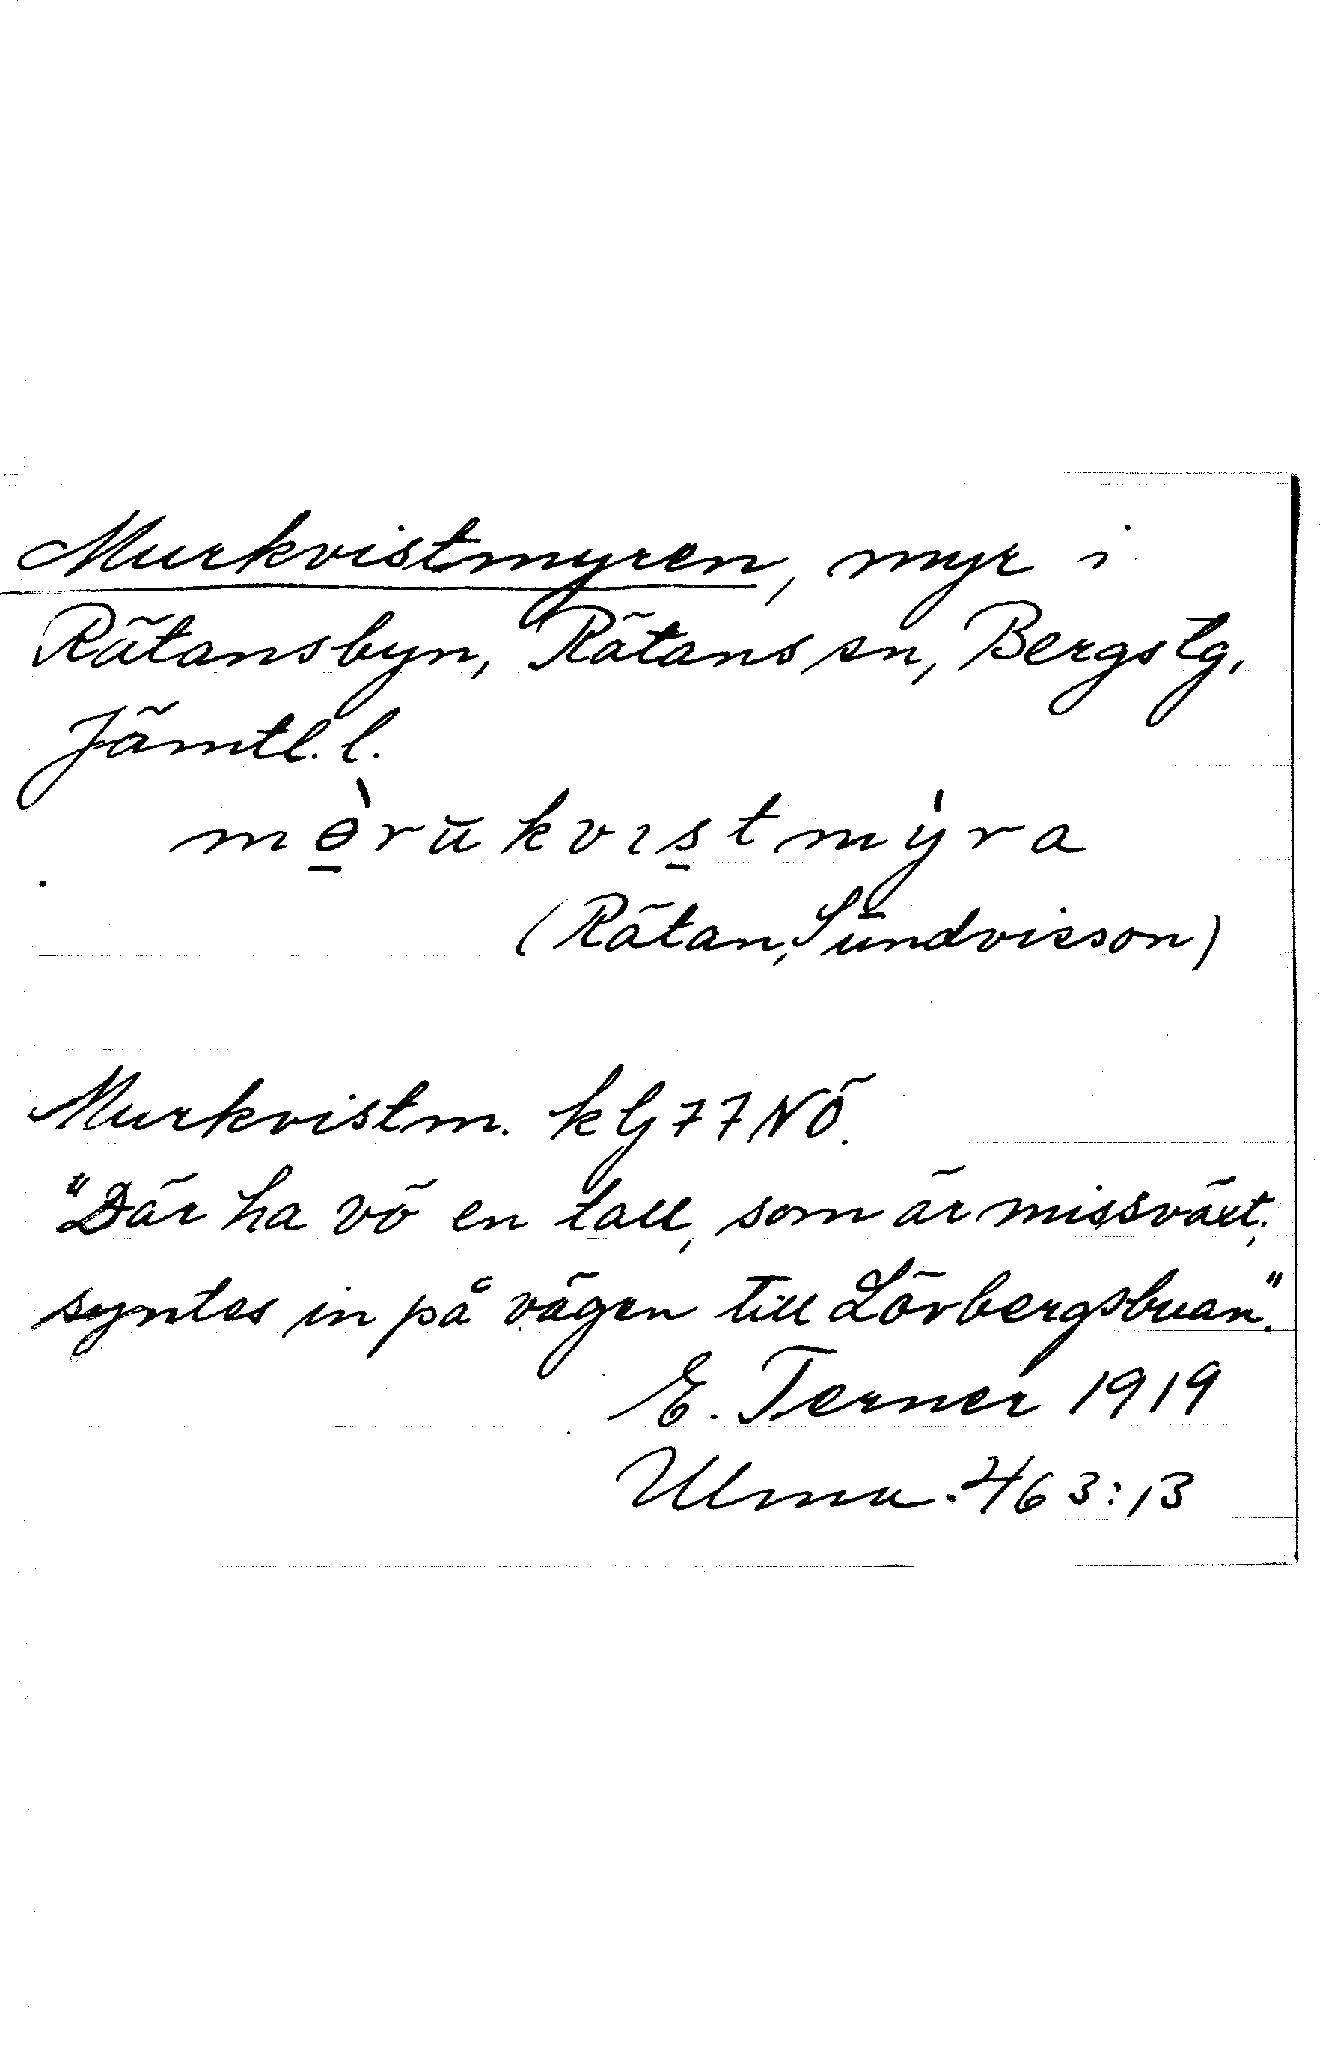 Murkvistmyren, myr i
Rätansbyn, Rätans sn, Bergs tg,
Jämtl. l.
mɵ̲̀rūkvɪs̲tmy̍ra
(Rätan, Sundvisson)
Murkvistm. kbj 77 NÖ.
"Där ha vö en tall, som är missväxt,
syntes in på vägen till Lövbergsbuan".
E. Terner 1919
Ulma. 463:13